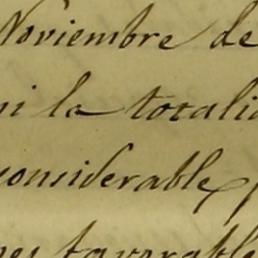 Noviembre de
ni la totali
considerable,
es favorable